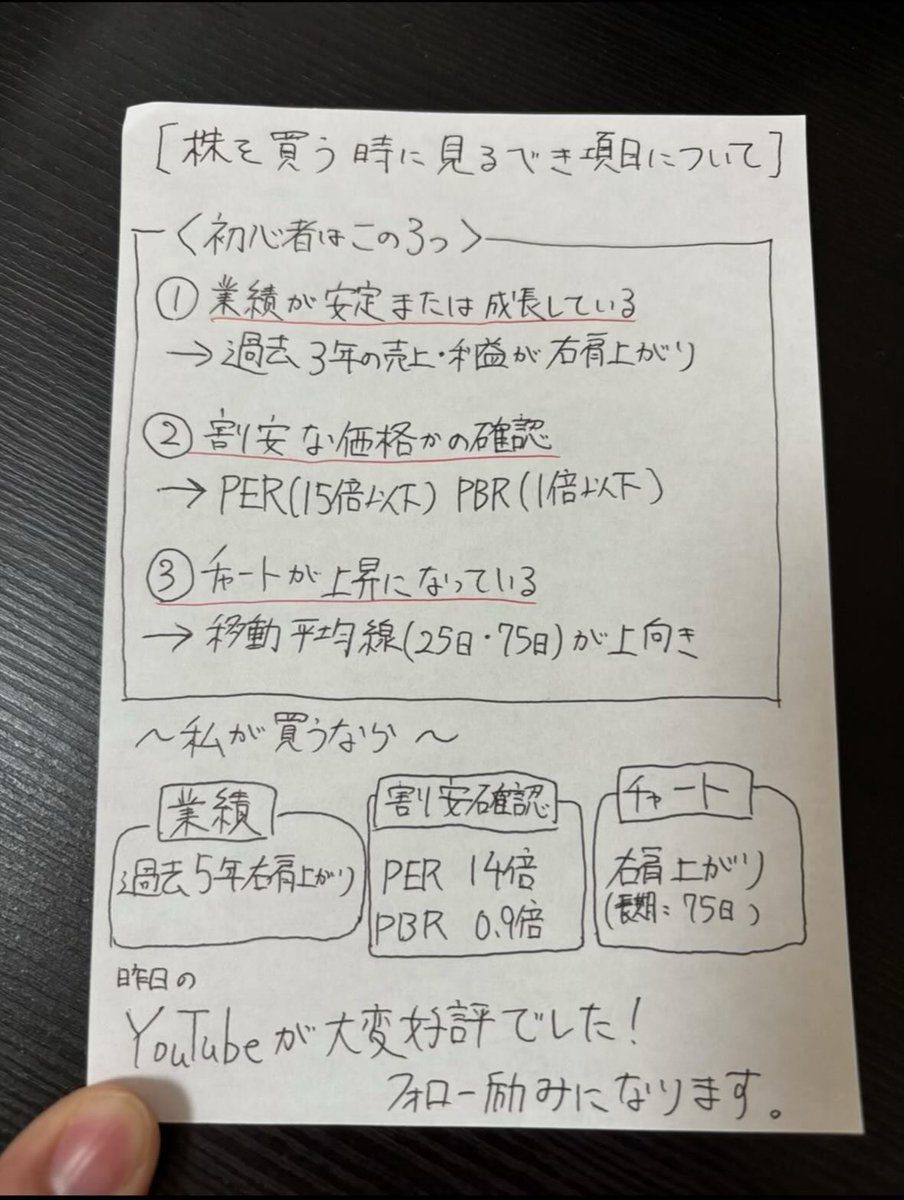 [株を買う時に見るべき項目について]
〈初心者はこの3つ〉
① 業績が安定または成長している
→ 過去3年の売上・利益が右肩上がり
② 割安な価格かの確認
→ PER(15倍以下) PBR(1倍以下)
③ チャートが上昇になっている
→ 移動平均線(25日・75日)が上向き
～私が買うなら～
業績
過去5年右肩上がり
割安確認
PER 14倍
PBR 0.9倍
チャート
右肩上がり
(長期：75日)
昨日の
YouTubeが大変好評でした!
フォロー励みになります。